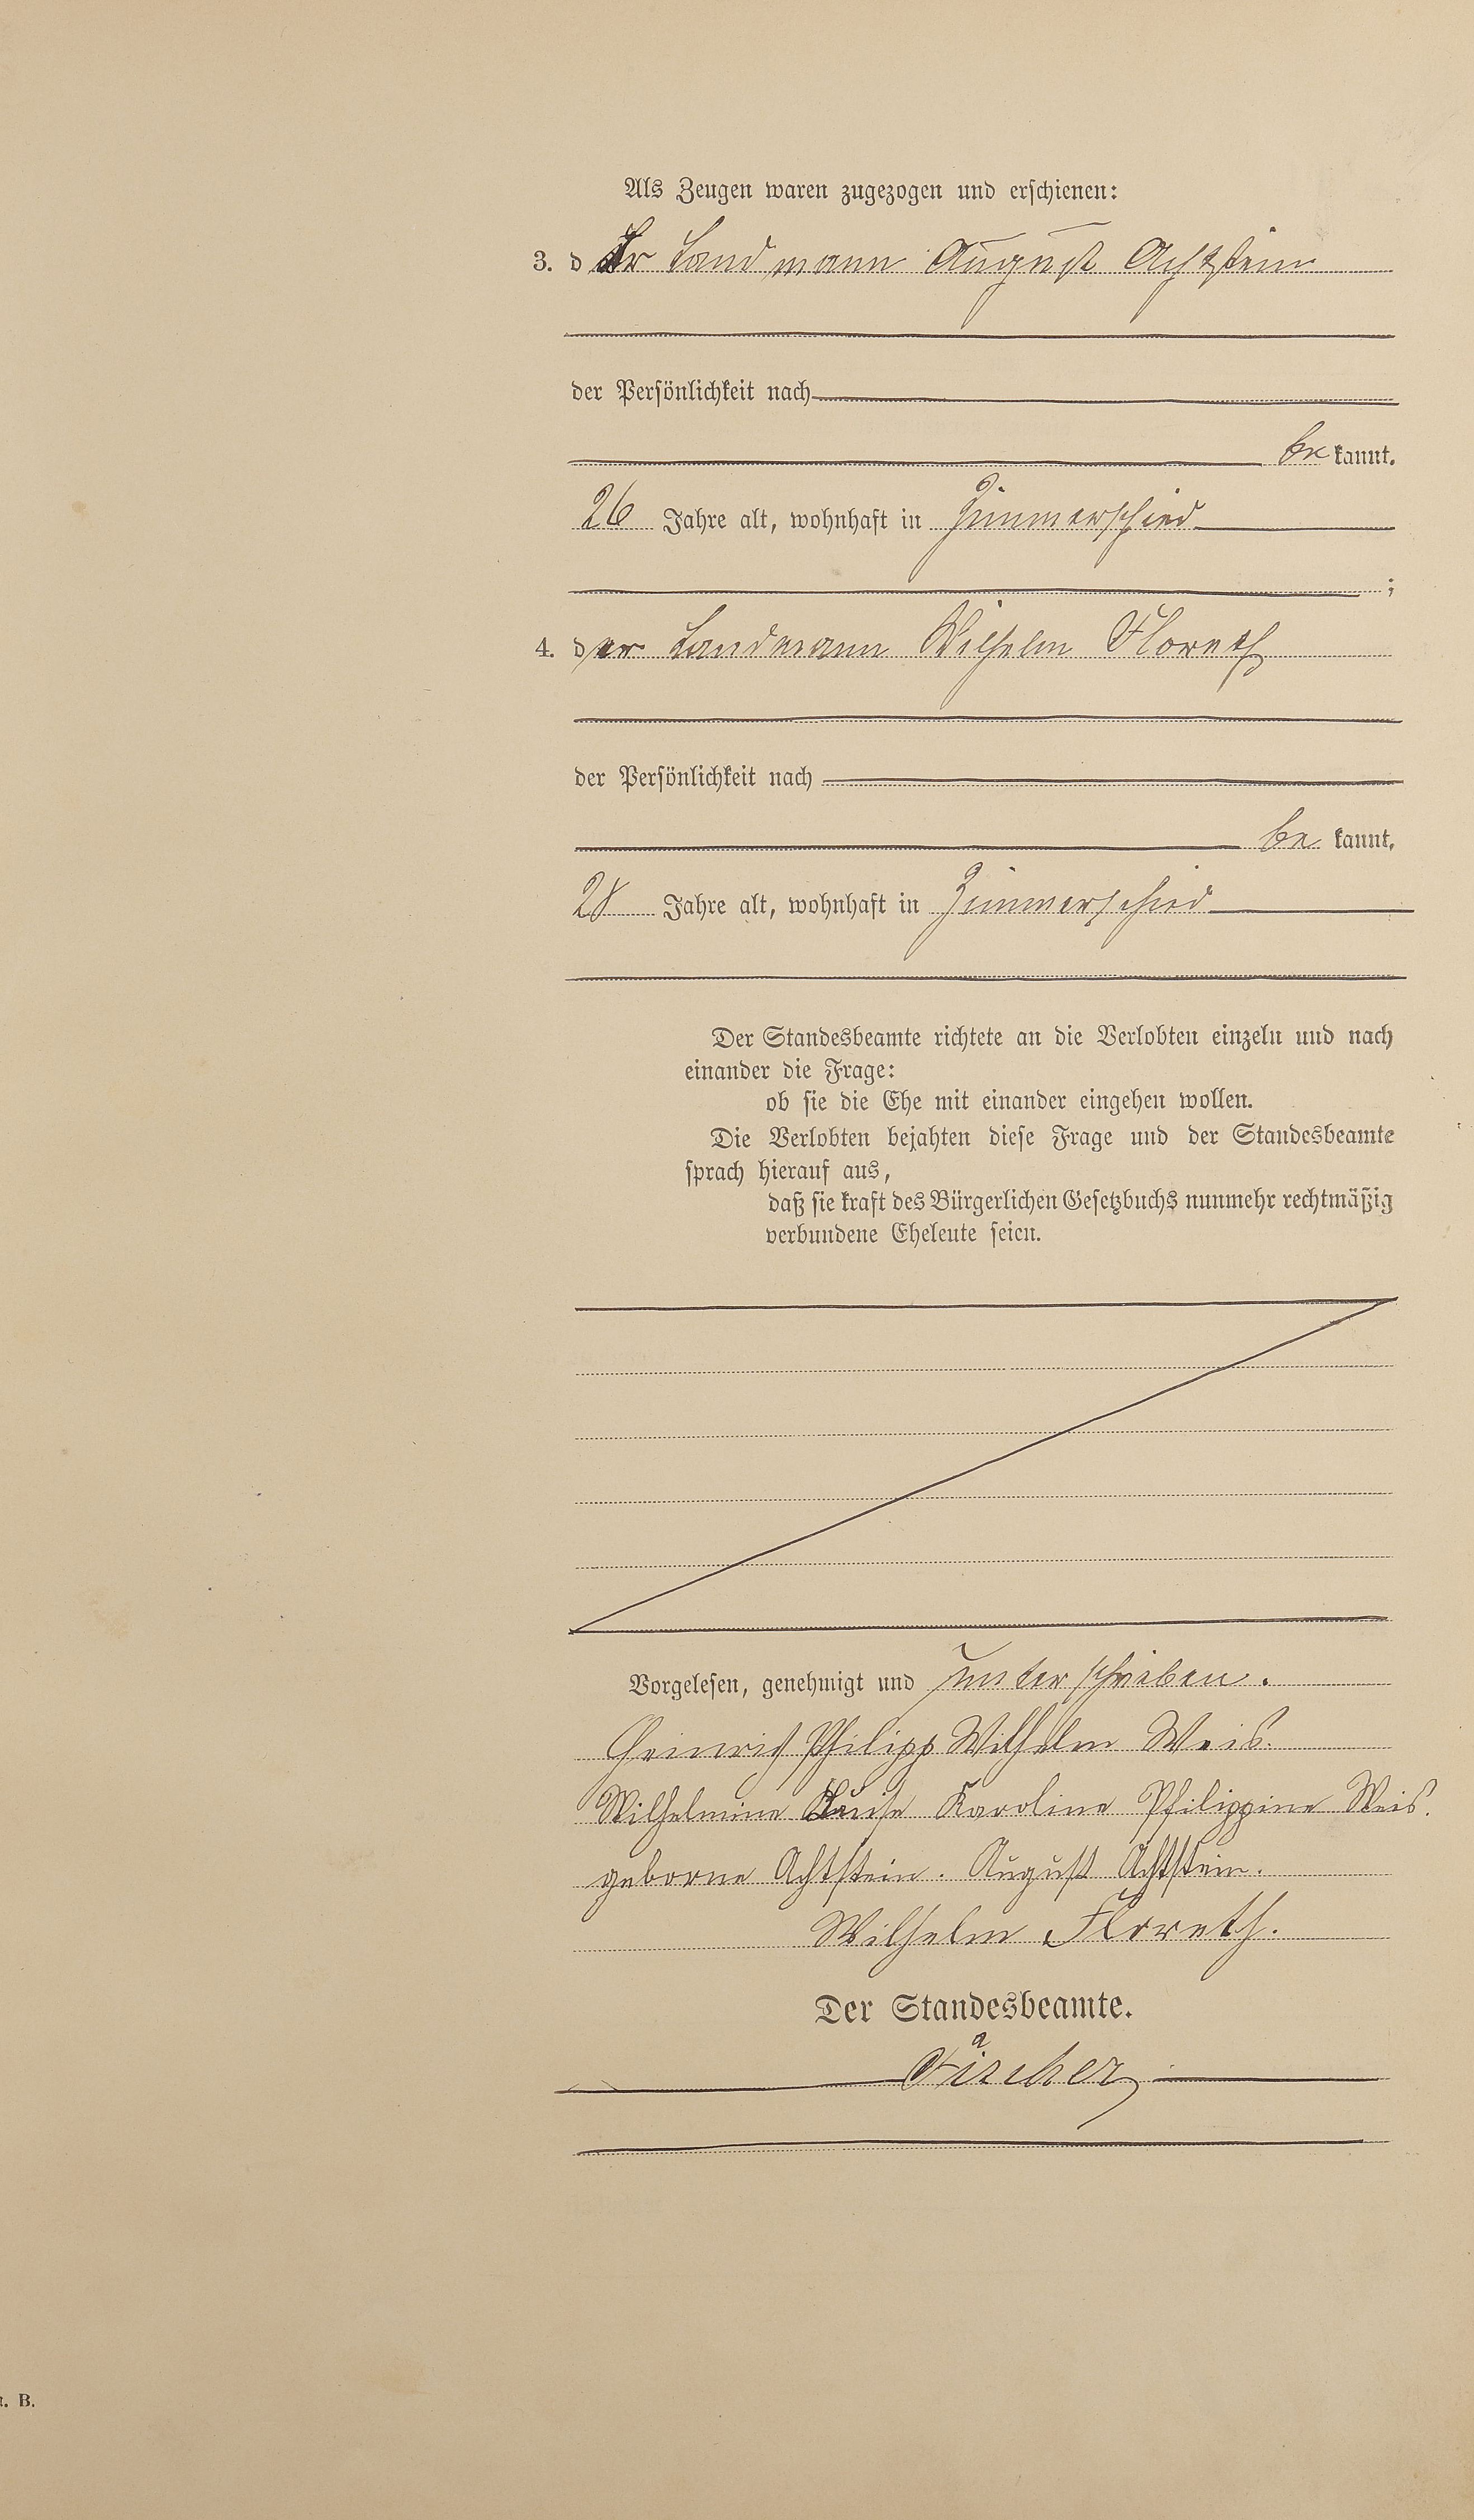 Als Zeugen waren zugezogen und erschienen:
3. der Landmann August Achtstein
der Persönlichkeit nach
be kannt.
26 Jahre alt, wohnhaft in Zimmerschied
;
4. der Landmann Wilhelm Floreth
der Persönlichkeit nach
be kannt.
28 Jahre alt, wohnhaft in Zimmerschied
Der Standesbeamte richtete an die Verlobten einzeln und nach
einander die Frage:
ob sie die Ehe mit einander eingehen wollen.
Die Verlobten bejahten diese Frage und der Standesbeamte
sprach hierauf aus,
daß sie kraft des Bürgerlichen Gesetzbuchs nunmehr rechtmäßig
verbundene Eheleute seien.
Vorgelesen, genehmigt und unterschrieben.
Heinrich Philipp Wilhelm Weis.
Wilhelmine Luise Karoline Philippine Weis.
geborne Achtstein. August Achtstein.
Wilhelm Floreth.
Der Standesbeamte.
Fischer
B.